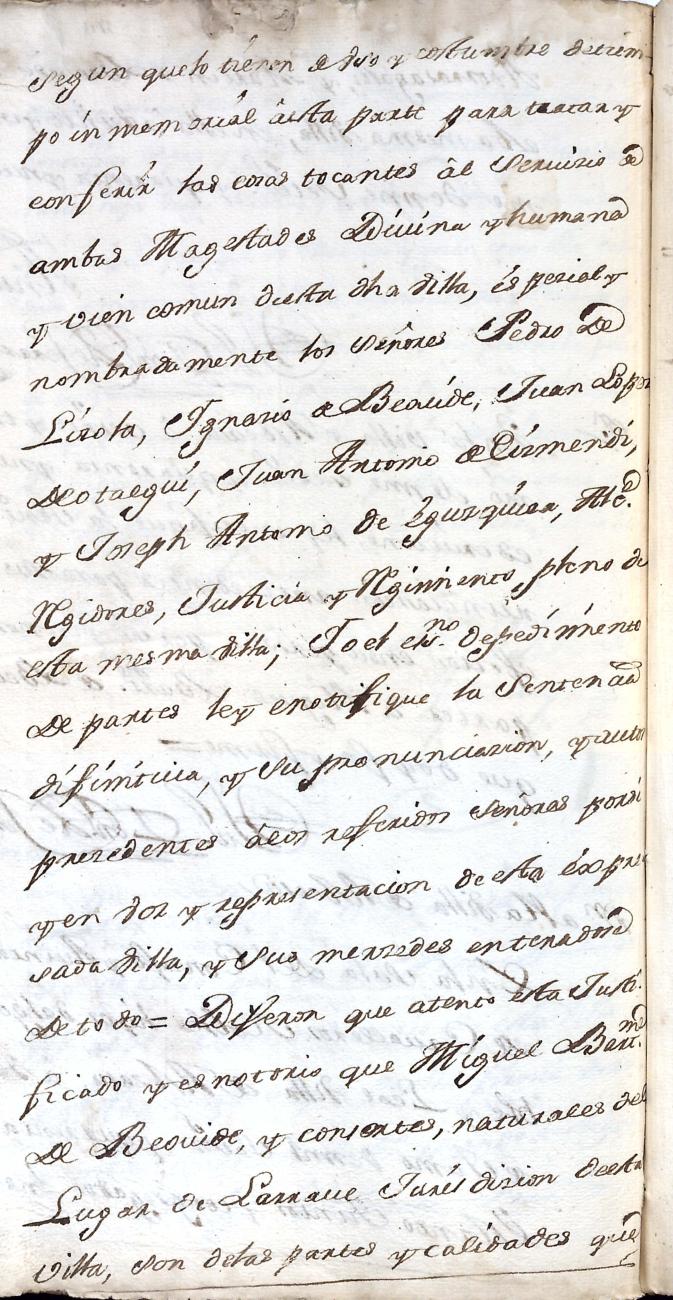 segun quelo tienen de uso y costumbre detiem-
po inmemorial aesta parte para tratar y
conferir las cosas tocantes al Servicio de
ambas Magestades Divina y humana
y vien comun deesta dha villa, espezial y
nombradamente los Señores Pedro De
Lizola, Ignazio de Beovide, Juan Lopez
De otaegui, Juan Antonio de Cizmendi,
y Joseph Antonio de Eguzquiza, Alc.e
Rgidores, Justicia y Rgimiento pleno de
esta mesma villa; Yo el esno. depedimiento
De partes ley enotifique la Sentencia
difinitiva, y su pronunciazion, y autos
prezedentes alos referidos señores porsi
y en voz y representacion de esta expre
sada villa, y sus merzedes enterados
De todo = Dixeron que atento esta Justi-
ficado y es notorio que Miguel Bartme.
De Beovide, y consortes, naturales del
Lugar de Larraue Jurisdizion deesta
villa, son delas partes y calidades que